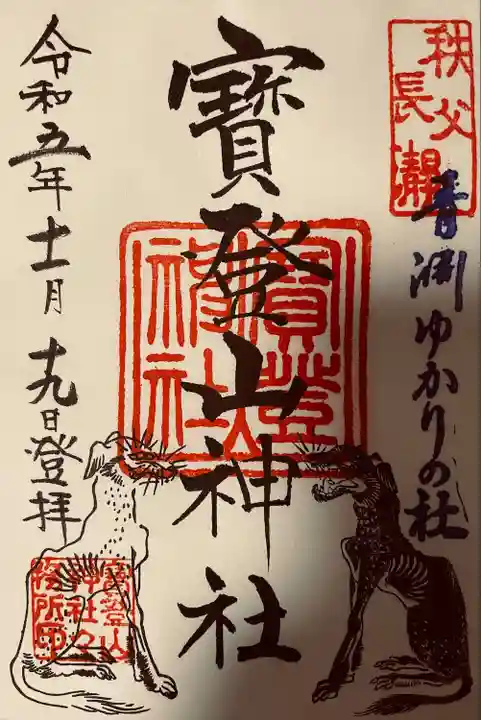 秩父
長瀞
青渊ゆかりの社
寳登山神社
寳登山
神社
令和五年十一月十九日登拝
寳登山
神社々
務所印